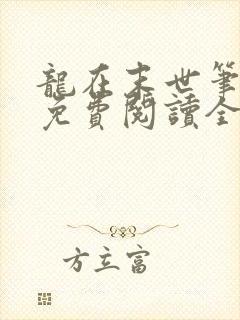 龍在末世筆
免費閱讀全
方立富